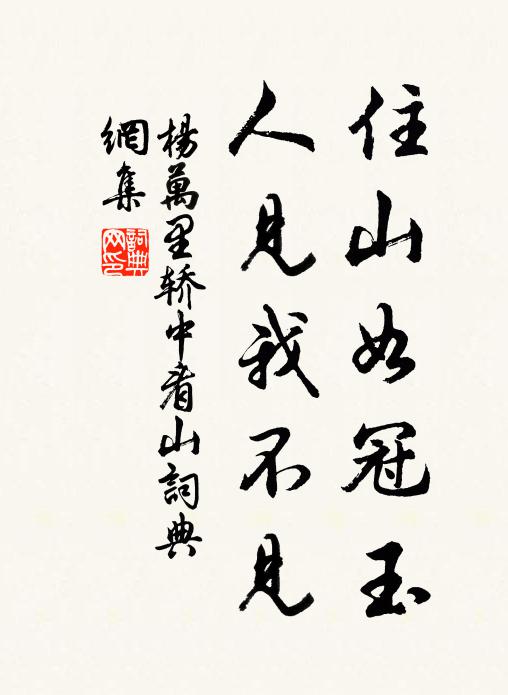 住山如冠玉
人見我不見
楊萬里轿中看山詞典
網集
詞典网印